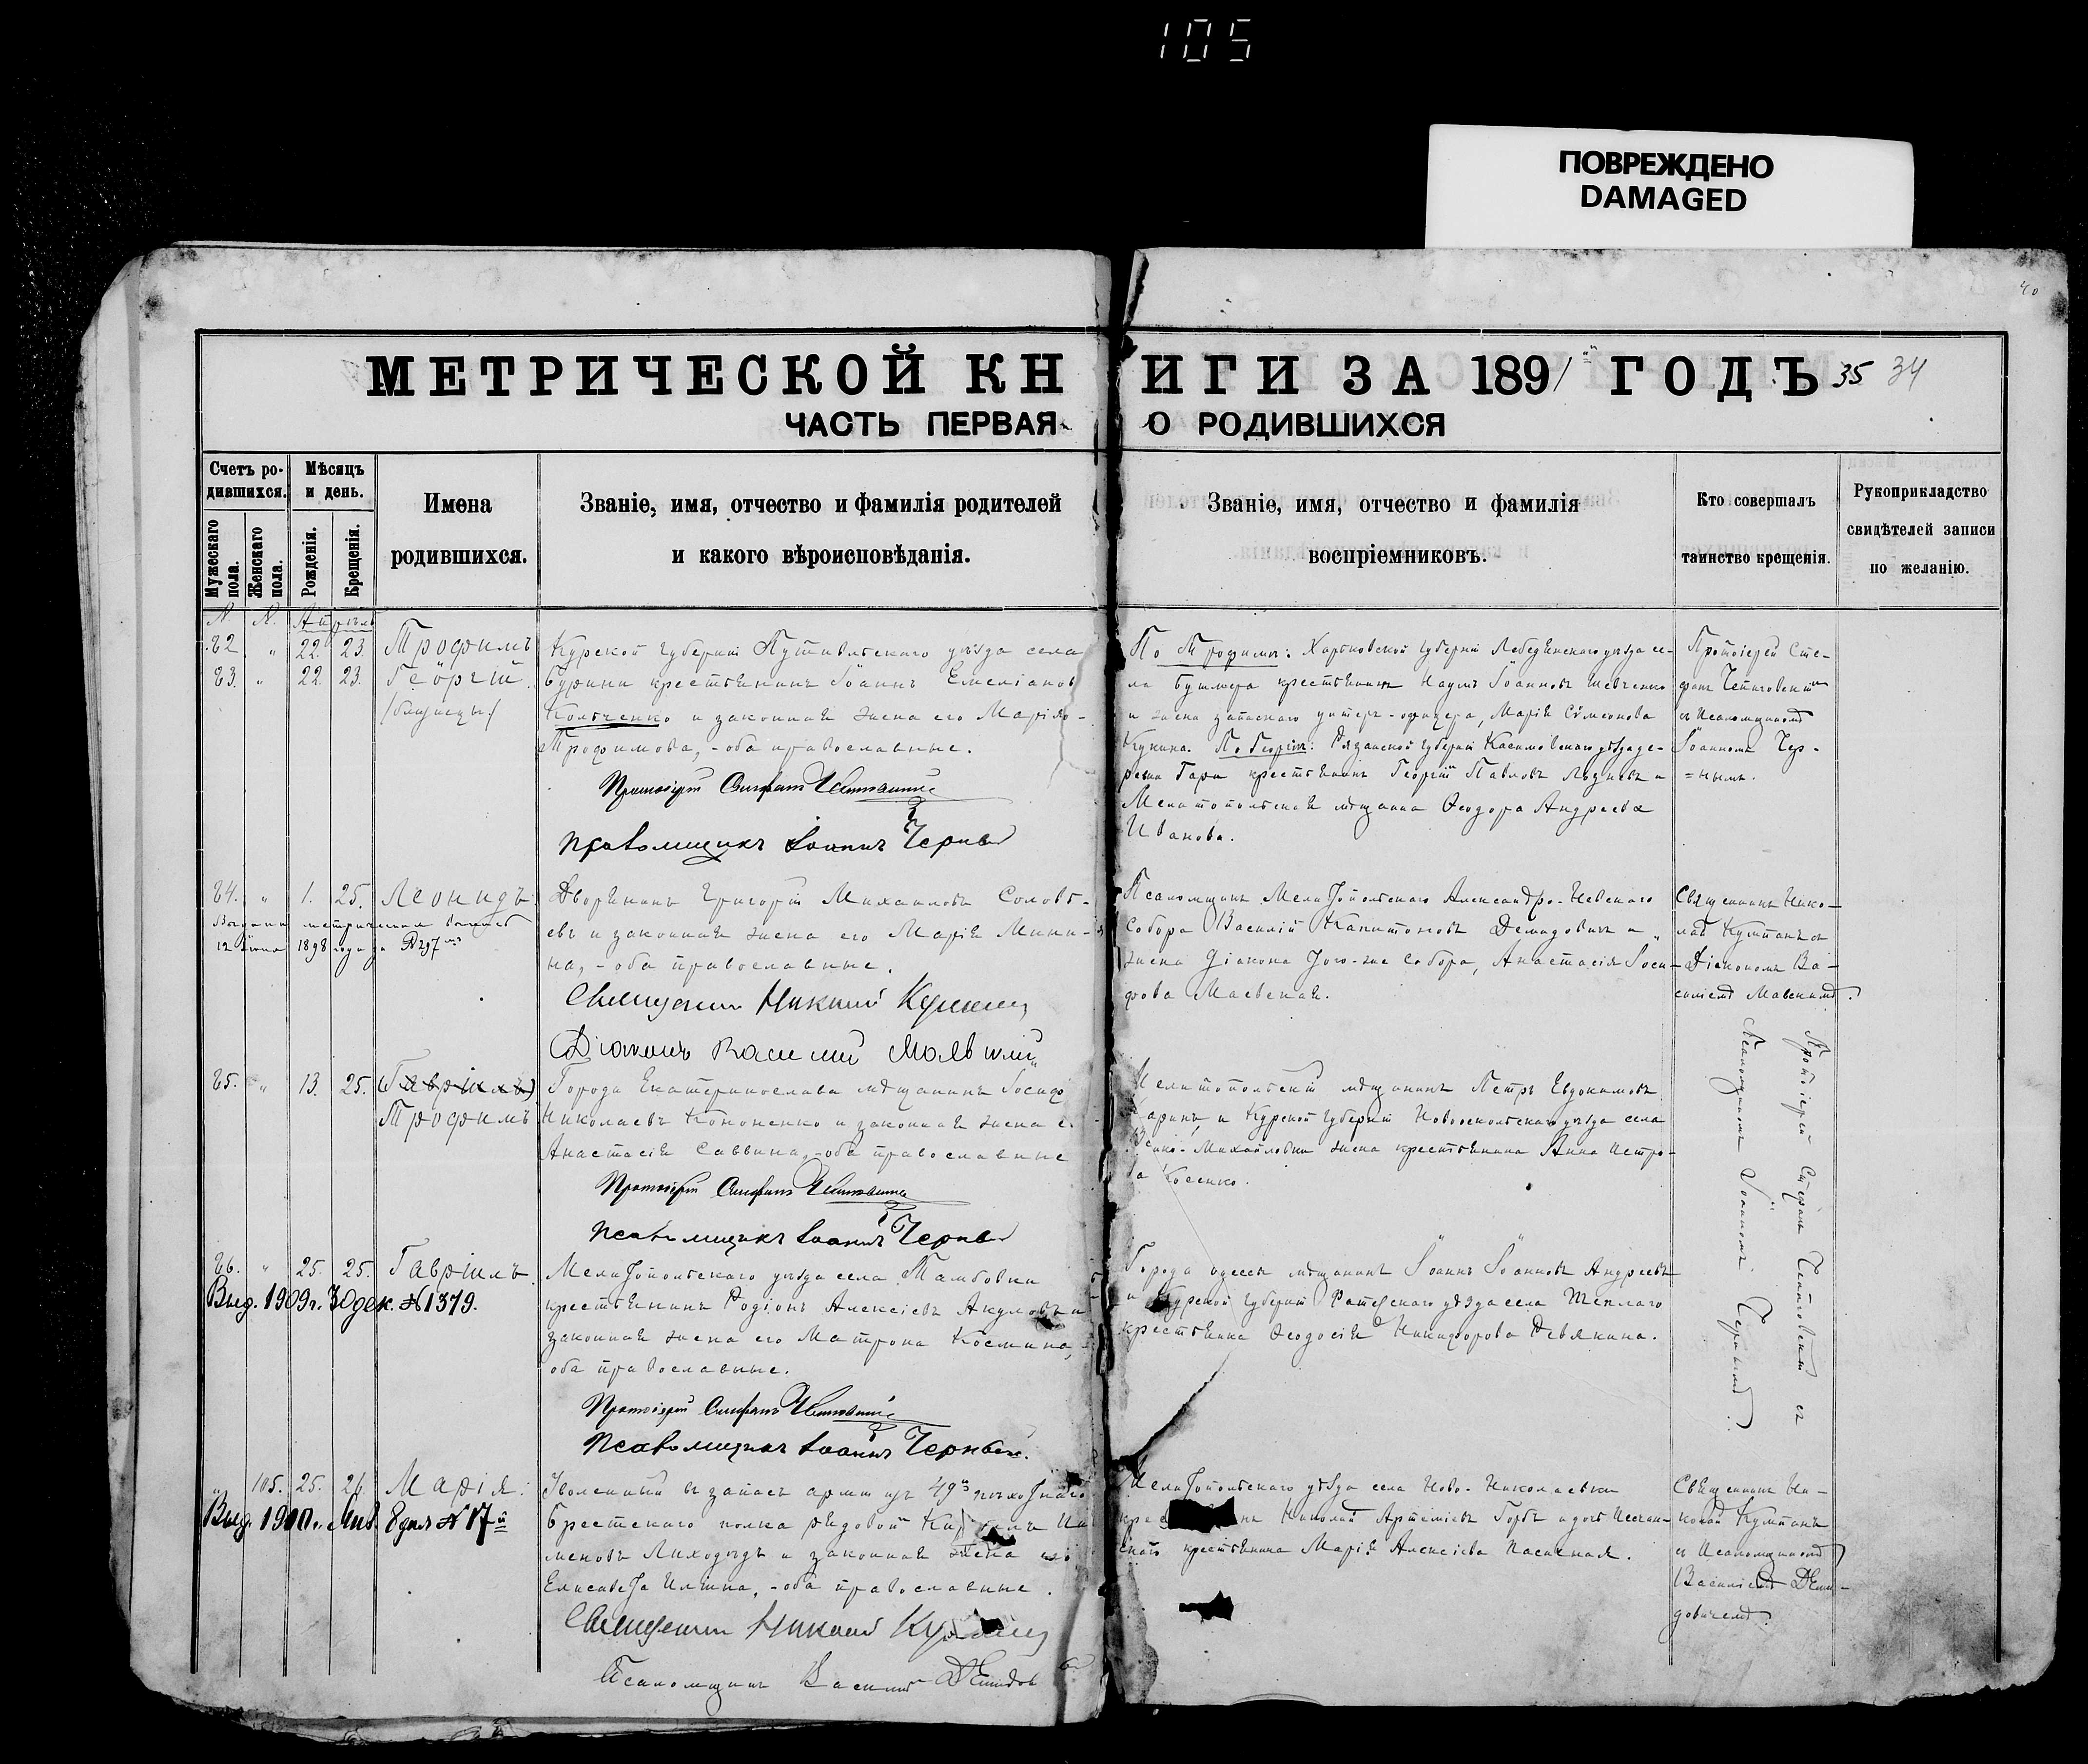 105
ПОВРЕЖДЕНО
DAMAGED
40
МЕТРИЧЕСКОЙ КНИГИ ЗА 1891 ГОДЪ 35 34
ЧАСТЬ ПЕРВАЯ О РОДИВШИХСЯ
Счетъ ро-
дившихся.
Мужескаго пола.
Женскаго пола.
Мѣсяцъ
и день.
Рожденія.
Крещенія.
Имена
родившихся.
Званіе, имя, отчество и фамилія родителей
и какого вѣроисповѣданія.
Званіе, имя, отчество и фамилія
воспріемниковъ.
Кто совершалъ
таинство крещенія.
Рукоприкладство
свидѣтелей записи
по желанію.
N. N. Апрѣль
82. " 22. 23 Трофимъ
83. " 22. 23. Геѳргій
/близнецы/
Курской губерніи Путивльскаго уѣзда села
Бурини крестьянинъ Іоаннъ Емеліановъ
Кольченко и законная жена его Марія
Трофимова, - оба православные.
Протоіерей Стефанъ
Псаломщикъ Іоаннъ Черный
По Трофимѣ: Харьковской губерніи Лебединскаго уѣзда се-
ла крестьянинъ Наумъ Іоанновъ Шевченко
и жена запаснаго унтеръ-офицера, Марія Сѵмеонова
Кукина. По Георгіи: Рязанской губерніи Касимовскаго уѣзда де-
ревни Гари крестьянинъ Георгій Павловъ и
Мелитопольская мѣщанка Ѳеодора Андреева
Иванова.
Протоіерей Сте-
фанъ
съ Псаломщикомъ
Іоанномъ Чер-
=нымъ.
84. " 1. 25. Леонидъ.
12 1898 года за № 297
Дворянинъ Григорій Михаиловъ Соловь-
евъ и законная жена его Марія Мини-
на, - оба православные.
Священникъ Николай
Діаконъ Василий
Псаломщикъ Мелитопольскаго Александро-Невскаго
Собора Василій Капитоновъ Демидовичъ и
жена Діакона того-же Собора, Анастасія Іоси-
фова Маевская.
Священникъ Нико-
лай
Діакономъ Ва-
силіемъ Маевскимъ.
85. " 13. 25. (Гавріилъ)
Трофимъ
Города Екатеринослава мѣщанинъ Іосифъ
Николаевъ Кононенко и законная жена е
Анастасія Саввина, - оба православные
Протоіерей Стефанъ
Псаломщикъ Іоаннъ Черный
Мелитопольскій мѣщанинъ Петръ Евдокимовъ
и Курской губерніи Новооскольскаго уѣзда села
Михайловки жена крестьянина Анна Петро-
ва
Протоіерей Стефанъ съ
Псаломщикомъ Іоанномъ Чернымъ.
86. " 25. 25. Гавріилъ.
Выд. 1909 г. 30 дек. № 1379.
Мелитопольскаго уѣзда села Тамбовки
крестьянинъ Родіонъ Алексіевъ Акуловъ и
законная жена его Матрона Космина,
оба православные.
Протоіерей Стефанъ
Псаломщикъ Іоаннъ Черный.
Города Одессы мѣщанинъ Іоаннъ Іоанновъ Андреевъ
и Курской губерніи уѣзда села Теплаго
крестьянка Ѳеодосія Никифорова Девякина.
" 105. 25. 26. Марія.
Выд. 1910 г. Янв. 8 дня № 17й
Уволенный въ запасъ арміи изъ 49го пѣхотнаго
Брестскаго полка рядовой
Лиходѣдъ и законная жена его
Елисавета Ильина, - оба православные.
Священникъ Николай
Псаломщикъ Василій Демидов
Мелитопольскаго уѣзда села Ново-Николаевки
Николай Артеміевъ Горбъ и дочь
крестьянина Марія Алексіева Пасичная.
Священникъ Ни-
колай
съ Псаломщикомъ
Василіемъ Деми-
довичемъ.